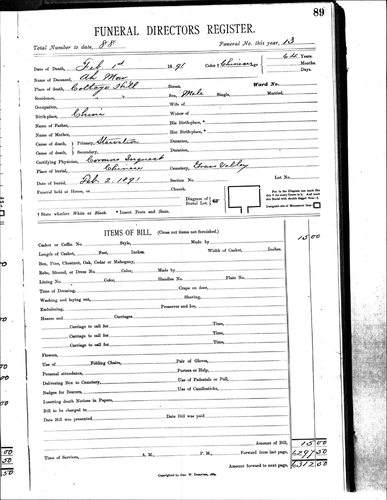 89
FUNERAL DIRECTORS REGISTER.
Total Number to date, 88 Funeral No. this year, 13
Date of Death, Feb 1st 1891 Color † Chinese Age 64 Years.
Months.
Days.
Name of Deceased, Ah Mow
Place of death, Cottage Hill Street, Ward No.
Residence, Sex, Male Single, Married,
Occupation, Wife of
Birth-place, China Widow of
Name of Father, His Birth-place, *
Name of Mother, Her Birth-place, *
Cause of death, Primary, Starvation Duration,
Cause of death, Secondary, Duration,
Certifying Physician, Coroners Inquest
Place of burial, Chinese Cemetery, Grass Valley
Date of burial, Feb. 2. 1891 Section No. Lot No.
Funeral held at House, or Church.
Diagram of Burial Lot.
† State whether White or Black. * Insert Town and State.
ITEMS OF BILL. (Cross out items not furnished.)
15.00
Casket or Coffin No. Style, Made by
Length of Casket, Feet, Inches. Width of Casket, Inches.
Box, Pine, Chestnut, Oak, Cedar or Mahogany,
Robe, Shroud, or Dress No. Color, Made by
Lining No. Color, Handles No. Plate No.
Time of Dressing, Crape on door,
Washing and laying out, Shaving,
Embalming, Preserver and Ice,
Hearse and Carriages
Carriage to call for Time,
Carriage to call for Time,
Carriage to call for Time,
Carriage to call for Time,
Flowers,
Use of Folding Chairs, Pair of Gloves,
Personal attendance, Porters or Help,
Delivering Box to Cemetery, Use of Pedestals or Pall,
Badges for Bearers, Use of Candlesticks,
Inserting death Notices in Papers,
Bill to be charged to
Date Bill was presented Date Bill was paid
Amount of Bill, 15.00
Time of Services, A. M., P. M. Forward from last page, 6297.50
Amount forward to next page, 6312.50